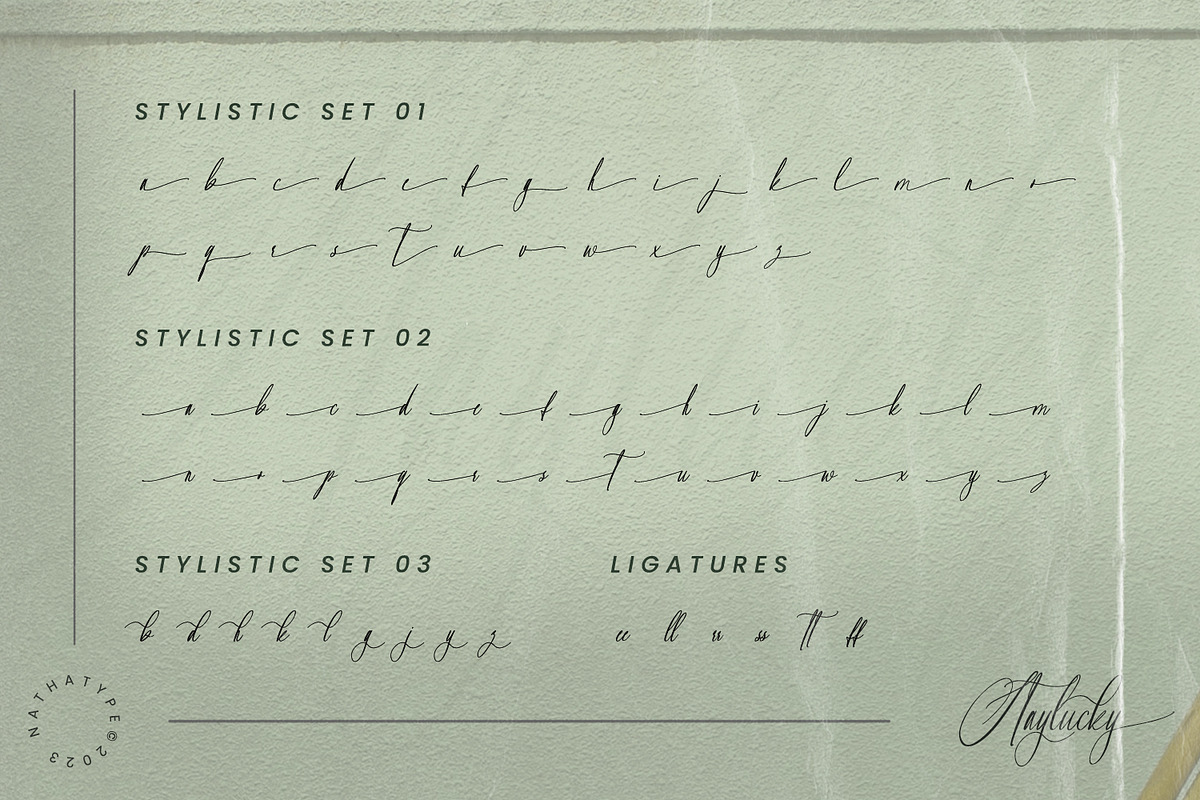 STYLISTIC SET 01
a b c d e f g h i j k l m n o
p q r s t u v w x y z
STYLISTIC SET 02
a b c d e f g h i j k l m
n o p q r s t u v w x y z
STYLISTIC SET 03
b d h k l g j y z
LIGATURES
ee ll rr ss tt ff
NATHATYPE©2023
Haylucky